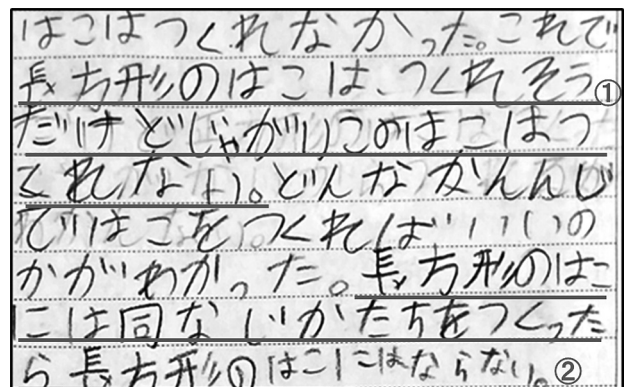 はこはつくれなかった。これで
長方形のはこは、つくれそう①
だけどじゃがりこのはこはつ
くれない。どんなかんんじ
ではこをつくればいいの
かがわかった。長方形のはこ
には同なじかたちをつくった
ら長方形のはこにはならない。②